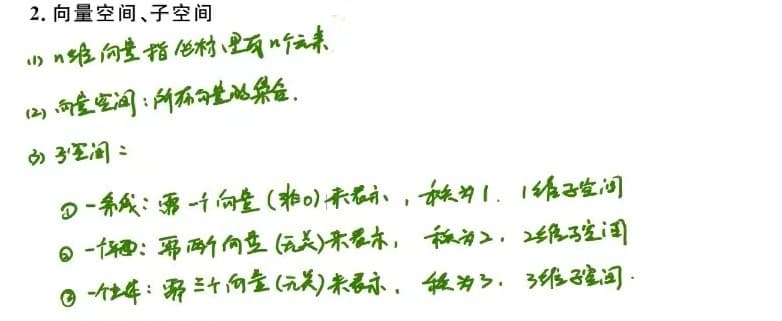 2. 向量空间、子空间
(1) n维向量指坐标里有n个元素
(2) 向量空间：所有向量的集合.
(3) 子空间：
① 一条线：需一个向量(非0)来表示，秩为1. 1维子空间
② 一个面：需两个向量(无关)来表示，秩为2，2维子空间
③ 一个立体：需三个向量(无关)来表示. 秩为3. 3维子空间.